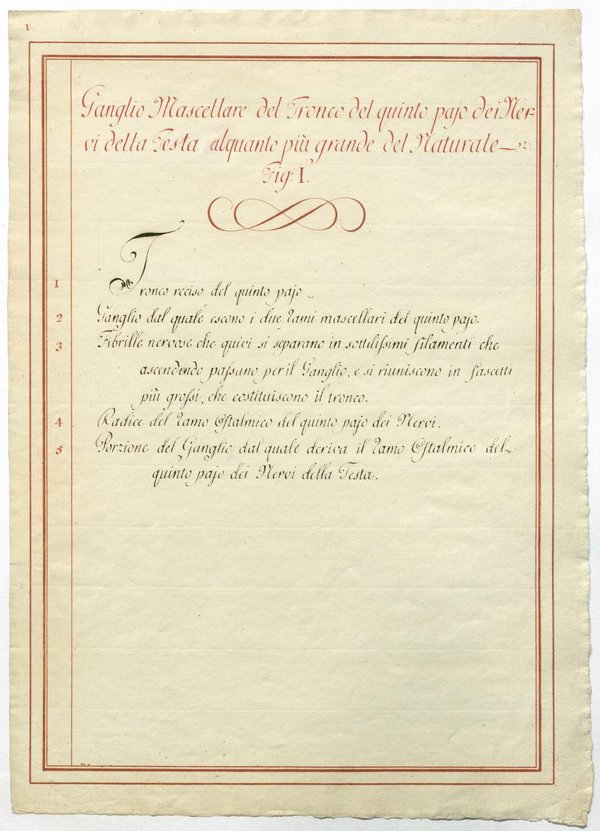 1
Ganglio Mascellare del Tronco del quinto pajo dei Ner-
vi della Testa alquanto più grande del Naturale
Fig: I.
1 Tronco reciso del quinto pajo
2 Ganglio dal quale escono i due rami mascellari del quinto pajo.
3 Fibrille nervose che quivi si separano in sottilissimi filamenti che
ascendendo passano per il Ganglio, e si riuniscono in fascetti
più grossi, che costituiscono il tronco.
4 Radice del ramo Oftalmico del quinto pajo dei Nervi.
5 Porzione del Ganglio dal quale deriva il ramo Oftalmico del
quinto pajo dei Nervi della Testa.